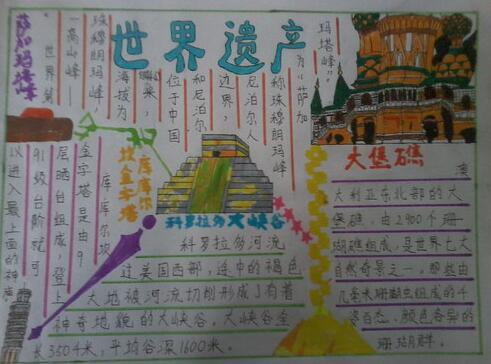 世界遗产
萨加玛塔峰
世界第
一高山峰——
珠穆朗玛峰,
海拔为
米,
位于中国
和尼泊尔
边界,
尼泊尔人
称珠穆朗玛峰
为“萨加
玛塔峰”。
库库尔
坎金字塔
库库尔坎
金字塔是由9
层晒台组成,登上
91级台阶就可
以进入最上面的神庙
科罗拉多大峡谷
科罗拉多河流
过美国西部,途中的褐色
大地被河流切削形成了有着
神奇地貌的大峡谷,大峡谷全
长350千米,平均谷深1600米。
大堡礁
澳
大利亚东北部的大
堡礁,由2900个珊
瑚礁组成,是世界七大
自然奇景之一,那些由
几毫米珊瑚虫组成的千
姿百态、颜色各异的
珊瑚群。